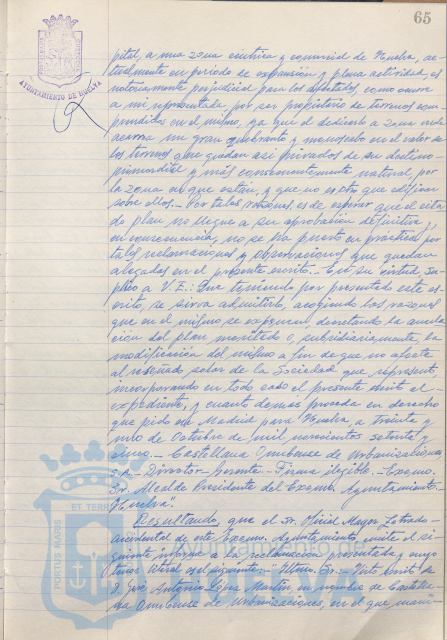 65
AYUNTAMIENTO DE HUELVA
pital, a una zona céntrica y comercial de Huelva, ac-
tualmente en periodo de expansión y plena actividad, es
notoriamente perjudicial para los afectados, como ocurre
a mi representada por ser propietario de terrenos com
prendidos en el mismo, ya que el dedicarlo a zona verde
acarrea un gran quebranto y menoscabo en el valor de
los terrenos que quedan así privados de su destino
primordial y más corrientemente natural por
la zona en que están, y que no es otro que edificar
sobre ellos.- Por tales razones, es de esperar que el cita
do plan no llegue a su aprobación definitiva y,
en consecuencia, no se lleve a puesto en práctica por
tales reclamaciones y observaciones que quedan
alegadas en el presente escrito.- En su virtud, Su
plico a V.E.: Que teniendo por presentado este es-
crito, se sirva admitirlo, acogiendo las razones
que en el mismo se exponen, decretando la anula
ción del plan meritado o, subsidiariamente, la
modificación del mismo a fin de que no afecte
al reseñado solar de la Sociedad que represento,
incorporando en todo caso el presente escrito al
expediente, y cuanto demás proceda en derecho
que pido en Madrid para Huelva, a treinta y
uno de Octubre de mil novecientos setenta y
cinco.- Castellana Onubense de Urbanizaciones
S.A.- Director Gerente.- Firma ilegible.- Excmo.
Sr. Alcalde Presidente del Excmo. Ayuntamiento.-
Huelva".
Resultando, que el Sr. Oficial Mayor Letrado
accidental de este Excmo. Ayuntamiento, emite el si
guiente informe a la reclamación presentada y cuyo
tenor literal es el siguiente: "Iltmo. Sr.:- Visto escrito de
D. José Antonio López Martín, en nombre de Castella
na Onubense de Urbanizaciones, en el que mani-
PORTUS MARIS ET TERRAE
HUELVA